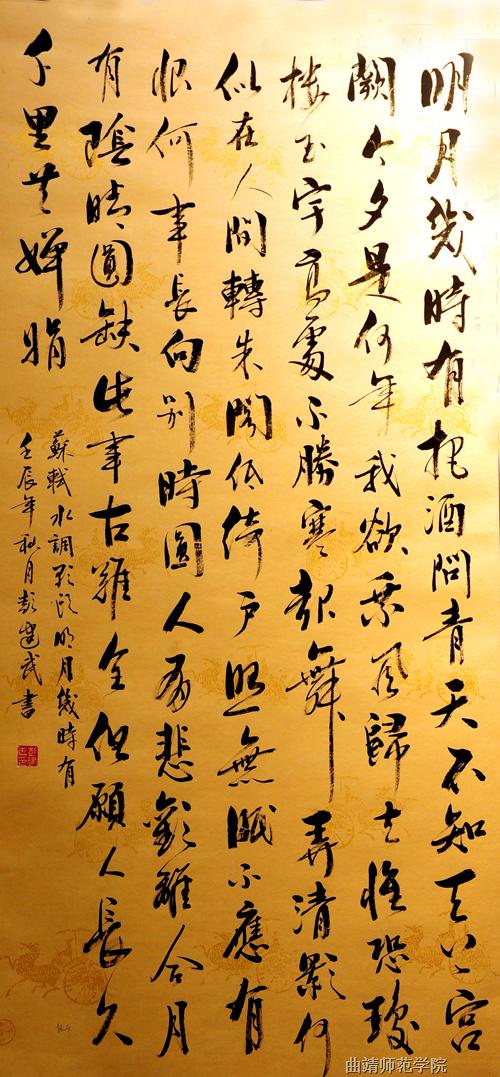 明月幾時有把酒問青天不知天上宮
闕今夕是何年我欲乘風歸去惟恐瓊
樓玉宇高處不勝寒起舞弄清影何
似在人間轉朱閣低倚戶照無眠不應有
恨何事長向別時圓人有悲歡離合月
有陰晴圓缺此事古難全但願人長久
千里共嬋娟
蘇軾水調歌頭明月幾時有
壬辰年秋月彭建武書
曲靖师范学院